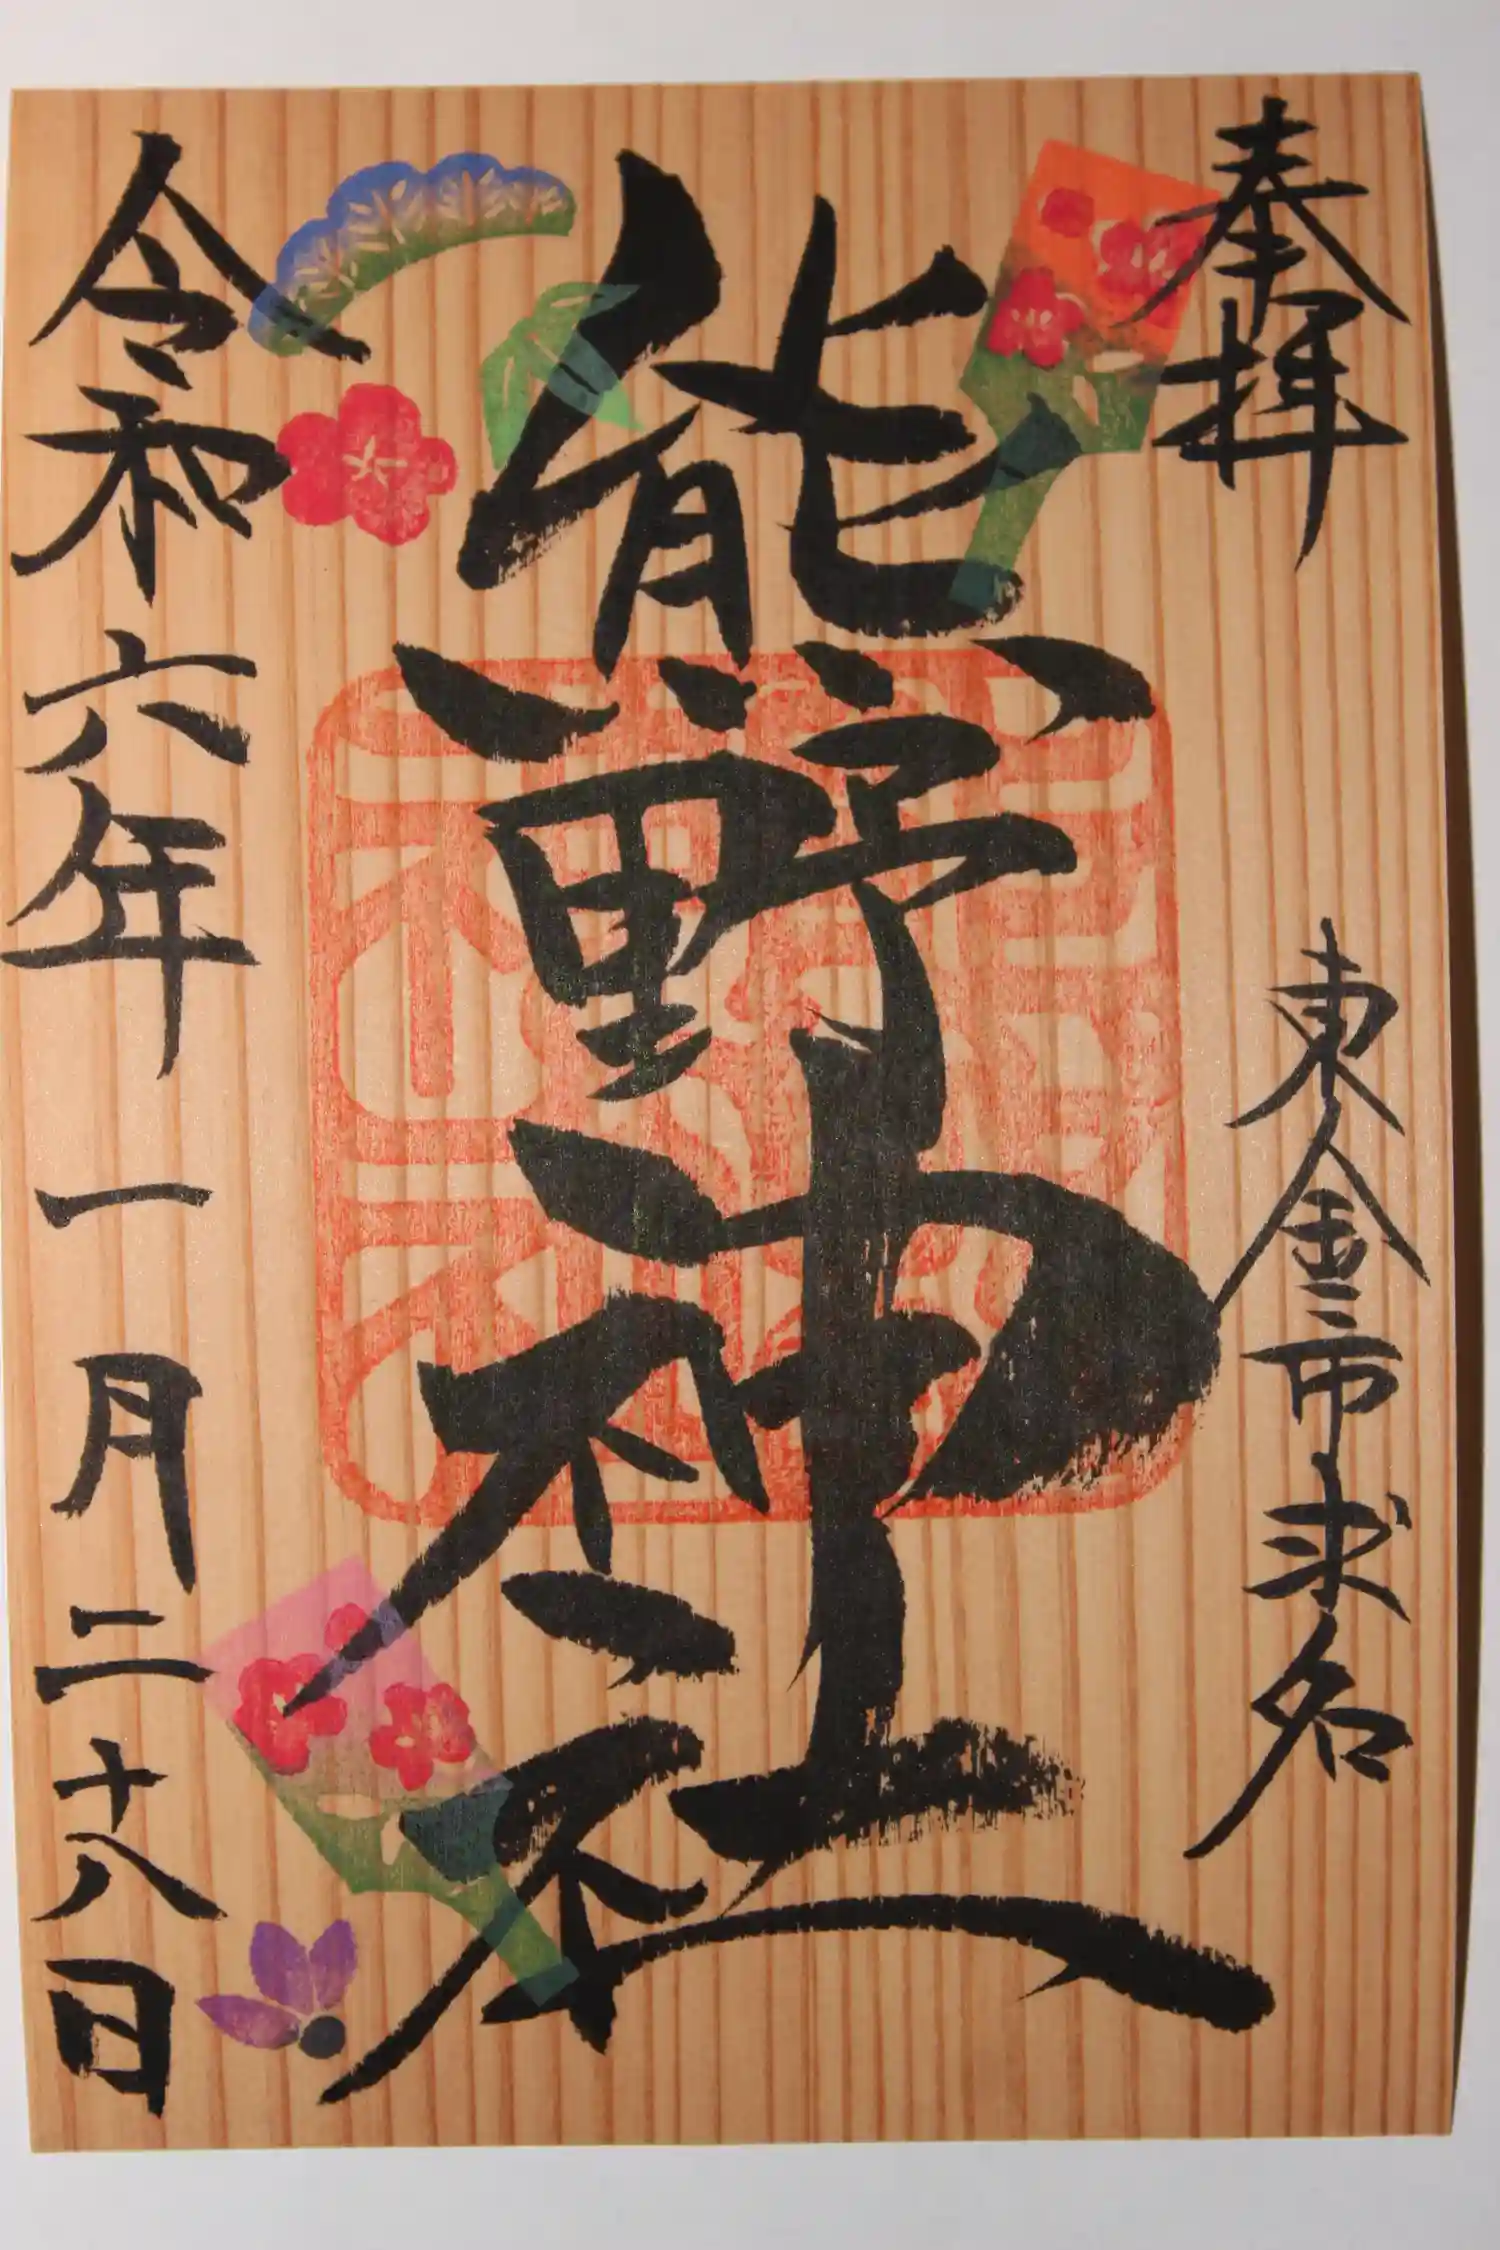 奉拝
東金市求名
熊野神社
令和六年一月二十八日